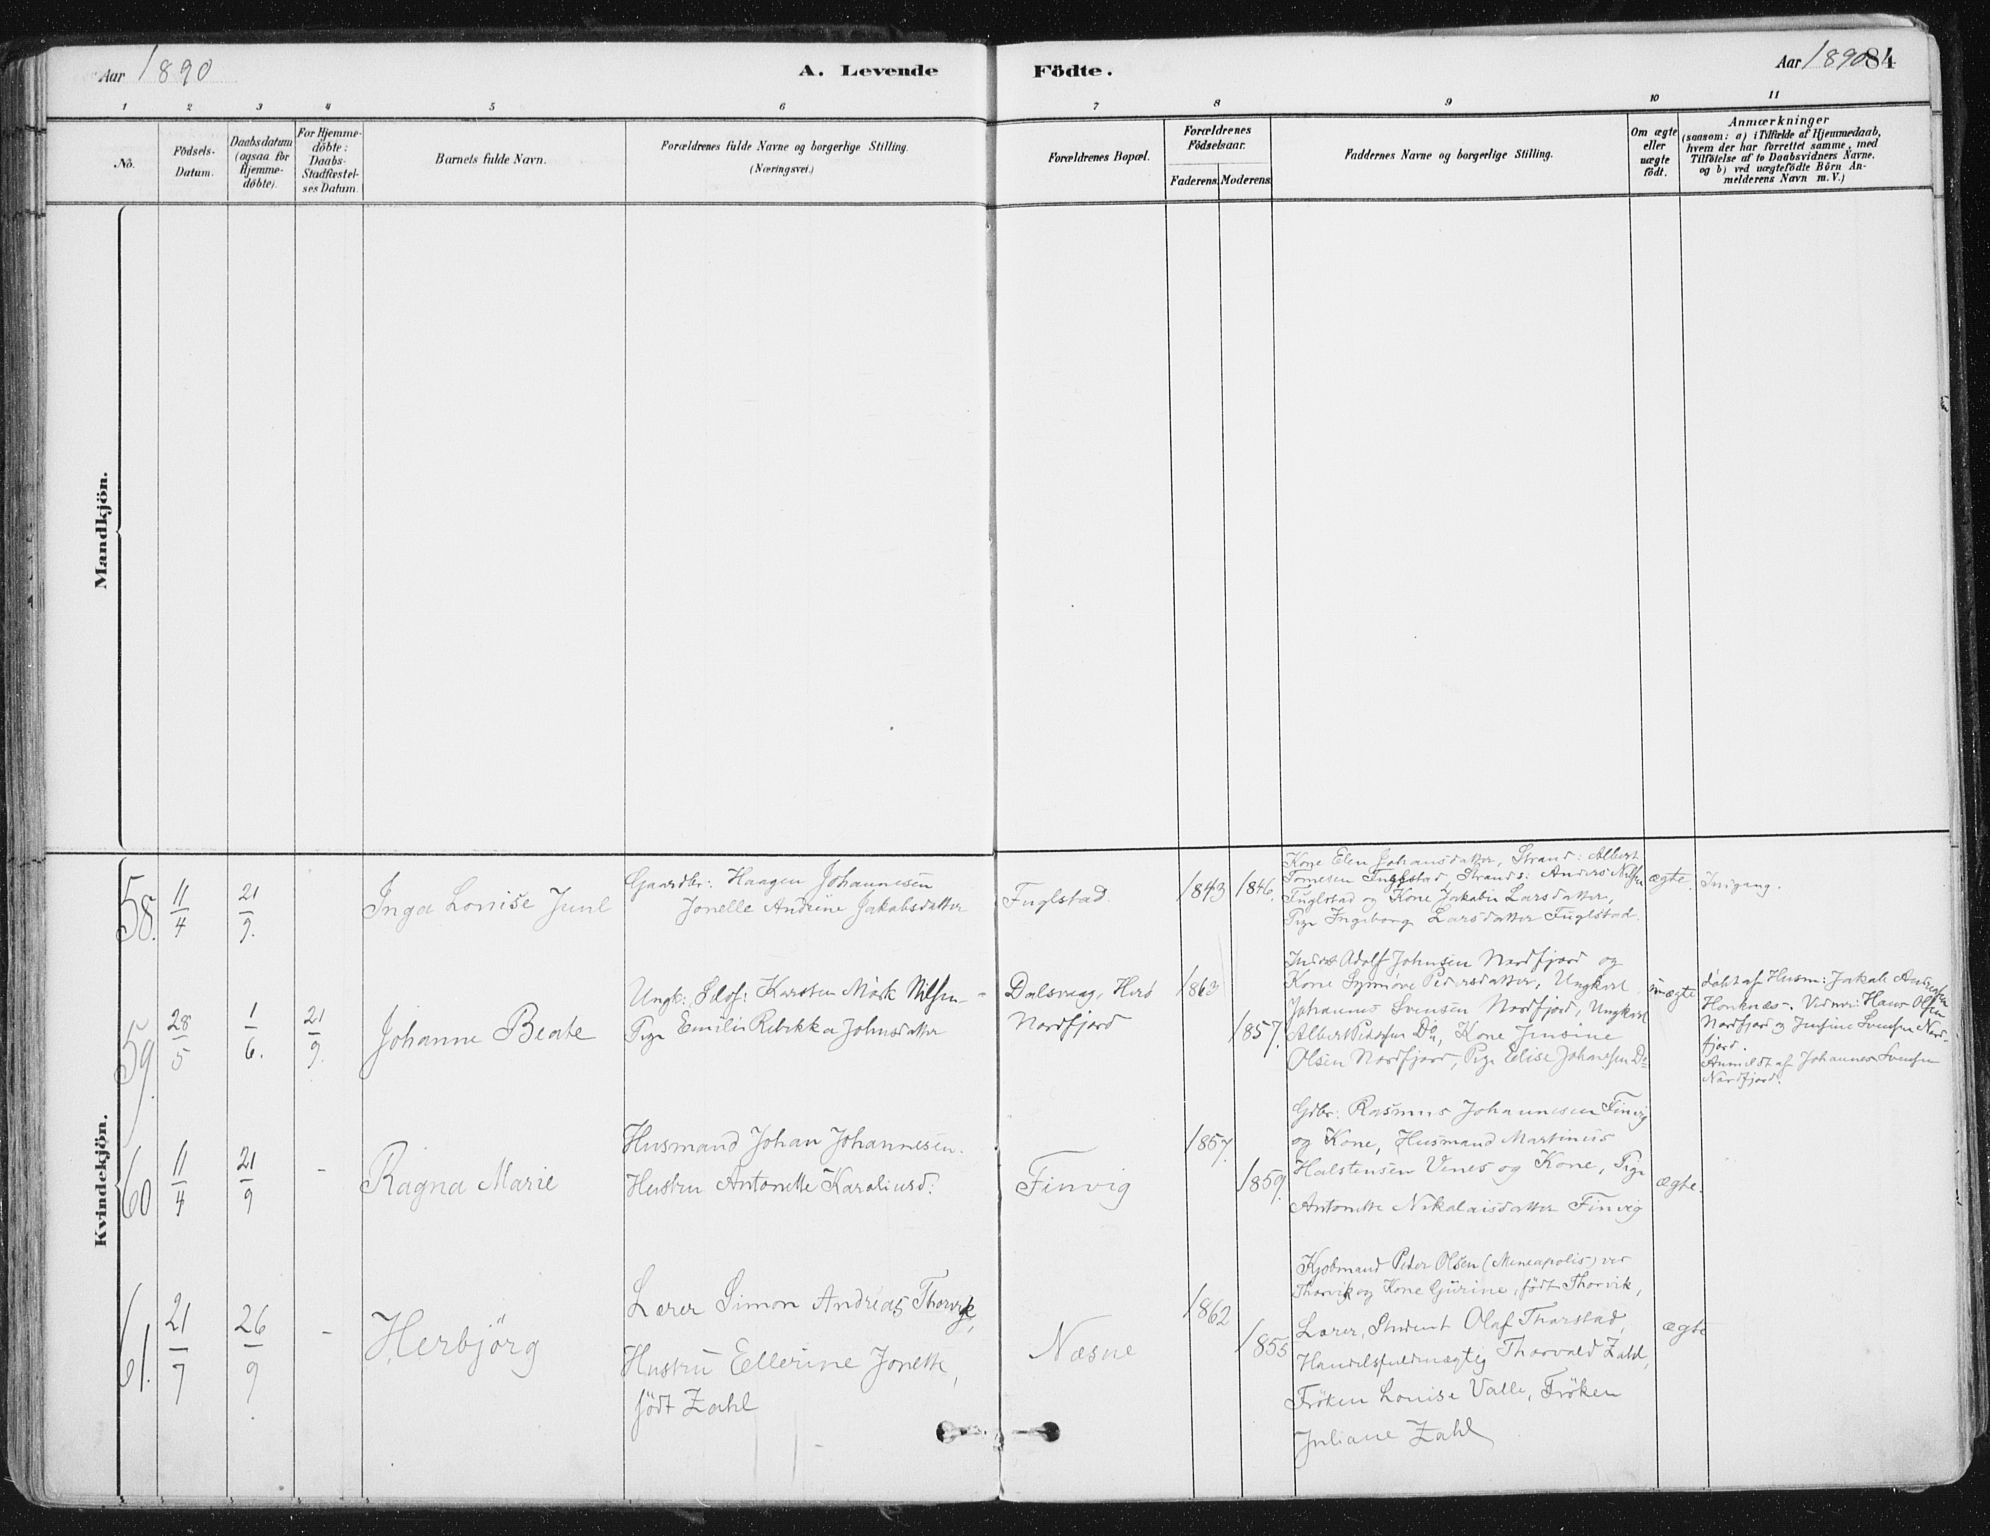 Aar 1890
A. Levende Födte.
Aar 1890 84
1 2 3 4 5 6 7 8 9 10 11
No.
Födsels-Datum.
Daabsdatum (ogsaa for Hjemme-döbte).
For Hjemme-döbte: Daabs-Stadfæstel-ses Datum.
Barnets fulde Navn.
Forældrenes fulde Navne og borgerlige Stilling.
(Næringsvei.)
Forældrenes Bopæl.
Forældrenes Födselsaar.
Faderens. Moderens.
Faddernes Navne og borgerlige Stilling.
Om ægte eller uægte födt.
Anmærkninger
(saasom: a) i Tilfælde af Hjemmedaab,
hvem der har forrettet samme, med
Tilföielse af to Daabsvidners Navne,
og b) ved uægtefödte Börn An-
melderens Navn m. V.)
Mandkjön.
Kvindekjön.
58. 11/4 21/9.
Inga Lonise Juul
Gaardbr: Haagen Johannesen
Jonelle Andrine Jakobsdatter
Fuglstad.
1843 1846.
Kone Elen Johansdatter, Strand: Albert
Tomesen Fuglstad, Strands: Anders Nilsen
Fuglstad og Kone Jakobin Larsdatter,
Pige Ingeborg Larsdatter Fuglstad.
ægte.
Indgang.
59. 28/5 1/6. 21/9.
Johanne Beate
Ungk: Karsten Mörk Nilsen
Pige Emilie Rebekka Johnsdatter
Dalsvaag, Herö
Nordfjord
1863
1857.
Adolf Johnsen Nordfjord og
Kone Synnöve Pedersdatter, Ungkarl
Johannes Svensen Nordfjord, Ungkarl
Albert Do, Kone Jensine
Olsen Nordfjord, Pige Elise Johansen Do
uægte
döbt af Husm: Jakob Andreas
Honknæs. Vidner: Hans Olsen
Nordfjord og Jensine Svensen Nord-
fjord.
Anmeldt af Johannes Svensen
Nordfjord.
60 11/4 21/9 -
Ragna Marie
Husmand Johan Johannesen.
Hustru Antonette Karoliusd:
Finvig
1857.
1859.
Gdbr: Rasmus Johannesen Finvig
og Kone, Husmand Martinus
Halstensen Venes og Kone, Pige
Antonette Nikolaisdatter Finvig
ægte.
61. 21/7 26/9. -
Herbjörg
Lærer Simon Andreas Thorvik,
Hustru Ellerine Jonette,
födt Zahl
Næsne
1862
1855
Kjöbmand Peder Olsen (Meneapolis) ver
Thorvik og Kone Gurine, födt Thorvik,
Lærer, Student Olaf Thorstad,
Handelsfuldmægtig Thorvald Zahl,
Fröken Louise Valle, Fröken
Juliane Zahl
ægte